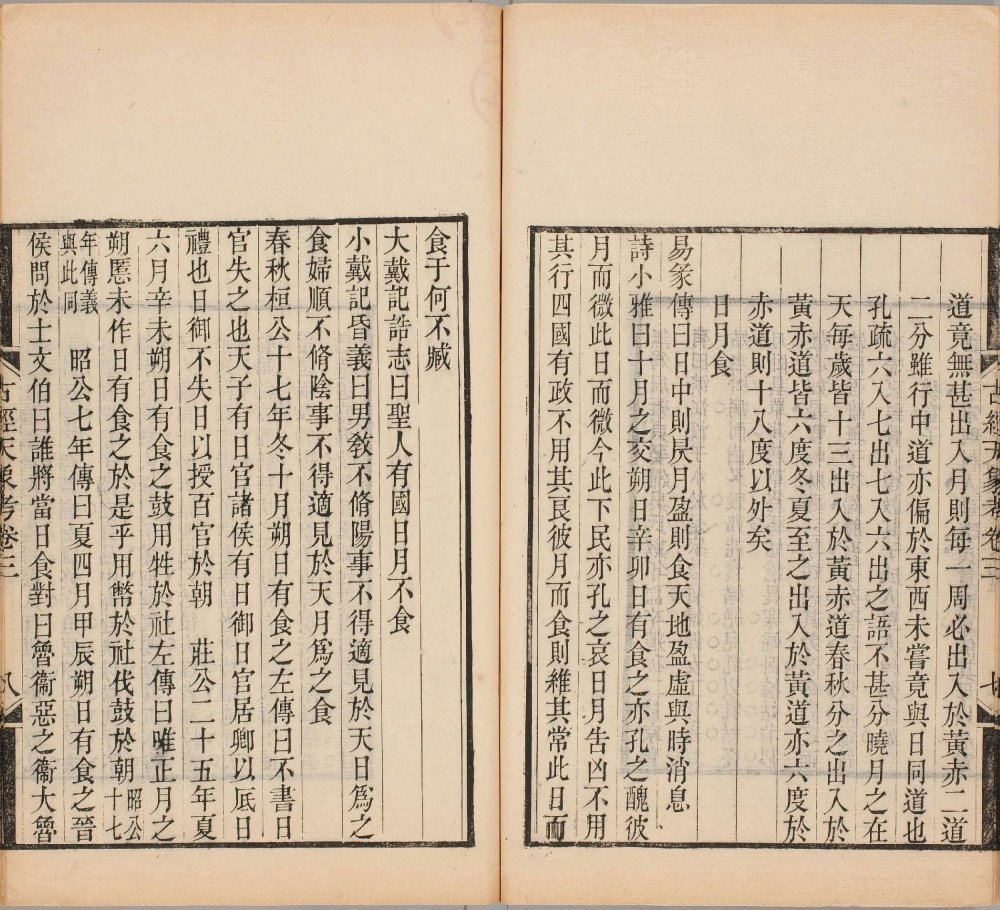 道竟無甚出入月則每一周必出入於黃赤二道
二分雖行中道亦偏於東西未嘗竟與日同道也
孔疏六入七出七入六出之語不甚分曉月之在
天每歲皆十三出入於黃赤道春秋分之出入於
黃赤道皆六度冬夏至之出入於黃道亦六度於
赤道則十八度以外矣
日月食
易彖傳曰日中則昃月盈則食天地盈虛與時消息
詩小雅曰十月之交朔日辛卯日有食之亦孔之醜彼
月而微此日而微今此下民亦孔之哀日月告凶不用
其行四國有政不用其良彼月而食則維其常此日而
古經天象考卷三
七
食于何不臧
大戴記誥志曰聖人有國日月不食
小戴記昏義曰男教不脩陽事不得適見於天日為之
食婦順不脩陰事不得適見於天月為之食
春秋桓公十七年冬十月朔日有食之左傳曰不書日
官失之也天子有日官諸侯有日御日官居卿以厎日
禮也日御不失日以授百官於朝 莊公二十五年夏
六月辛未朔日有食之鼓用牲於社左傳曰唯正月之
朔慝未作日有食之於是乎用幣於社伐鼓於朝昭公十七
年傳義與此同 昭公七年傳曰夏四月甲辰朔日有食之晉
侯問於士文伯曰誰將當日食對曰魯衞惡之衞大魯
古經天象考卷三
八